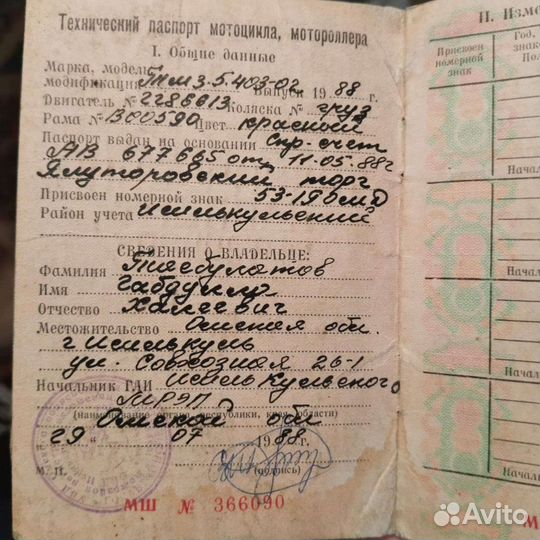 Технический паспорт мотоцикла, мотороллера
I. Общие данные
Марка, модель,
модификация ТМЗ-5.403-02 выпуск 1988 г.
Двигатель № 2286613 коляска № груз
Рама № В00590 Цвет красный
Паспорт выдан на основании Спр-счет
АВ 677665 от 11-05-88г
Ялуторовский торг
Присвоен номерной знак 53-19 омд
Район учета Исилькульский
СВЕДЕНИЯ О ВЛАДЕЛЬЦЕ:
Фамилия Таебулатов
Имя Габдулла
Отчество Халеевич
Местожительство Омская обл.
г Исилькуль
ул. Совхозная 26-1
Начальник ГАИ Исилькульского
МРЭП
(наименование органа республики, края, области)
Омской обл
"29" 07 1988 г.
М. П. (подпись)
МШ № 366090
II. Изме
Присвоен
номерной
знак
Год,
знак
По
Начал
Начал
Началь
Началь
М
Avito